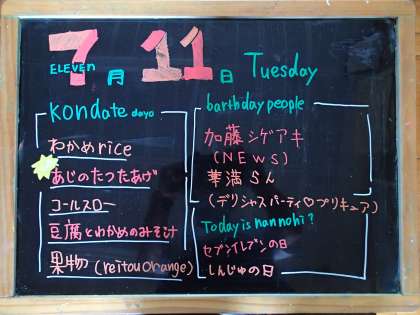 7月11日 Tuesday
ELEVEn
kondate dayo
わかめrice
あじのたつたあげ
コールスロー
豆腐とわかめのみそ汁
果物(reitou orange)
barthday people
加藤シゲアキ
(NEWS)
華満らん
(デリシャスパーティ♡プリキュア)
Today is nan nohi?
セブンイレブンの日
しんじゅの日